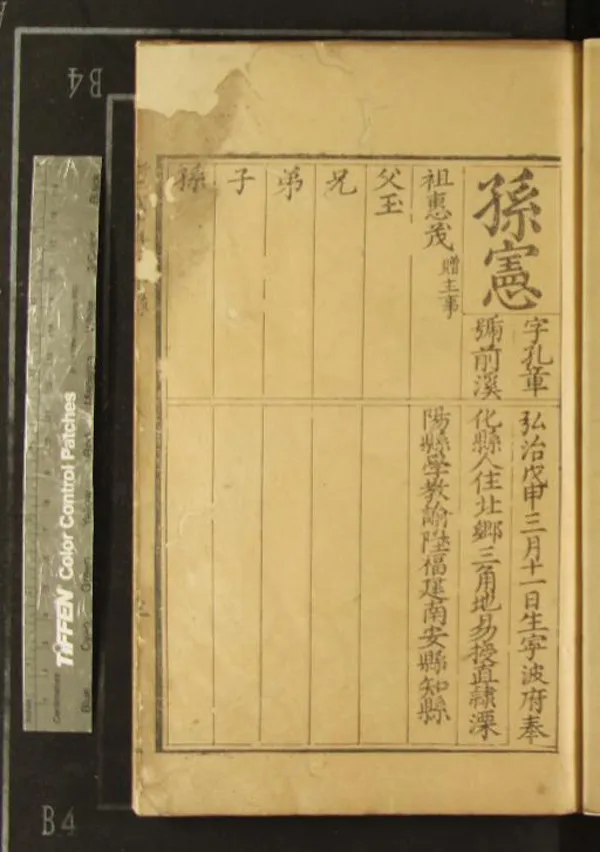 孫憲
字孔章
號前溪
弘治戊申三月十一日生寧波府奉
化縣人住北鄉三角地易授直隸溧
陽縣學教諭陞福建南安縣知縣
祖惠茂 贈主事
父玉
兄
弟
子
孫
B4
B4
TIFFEN Color Control Patches